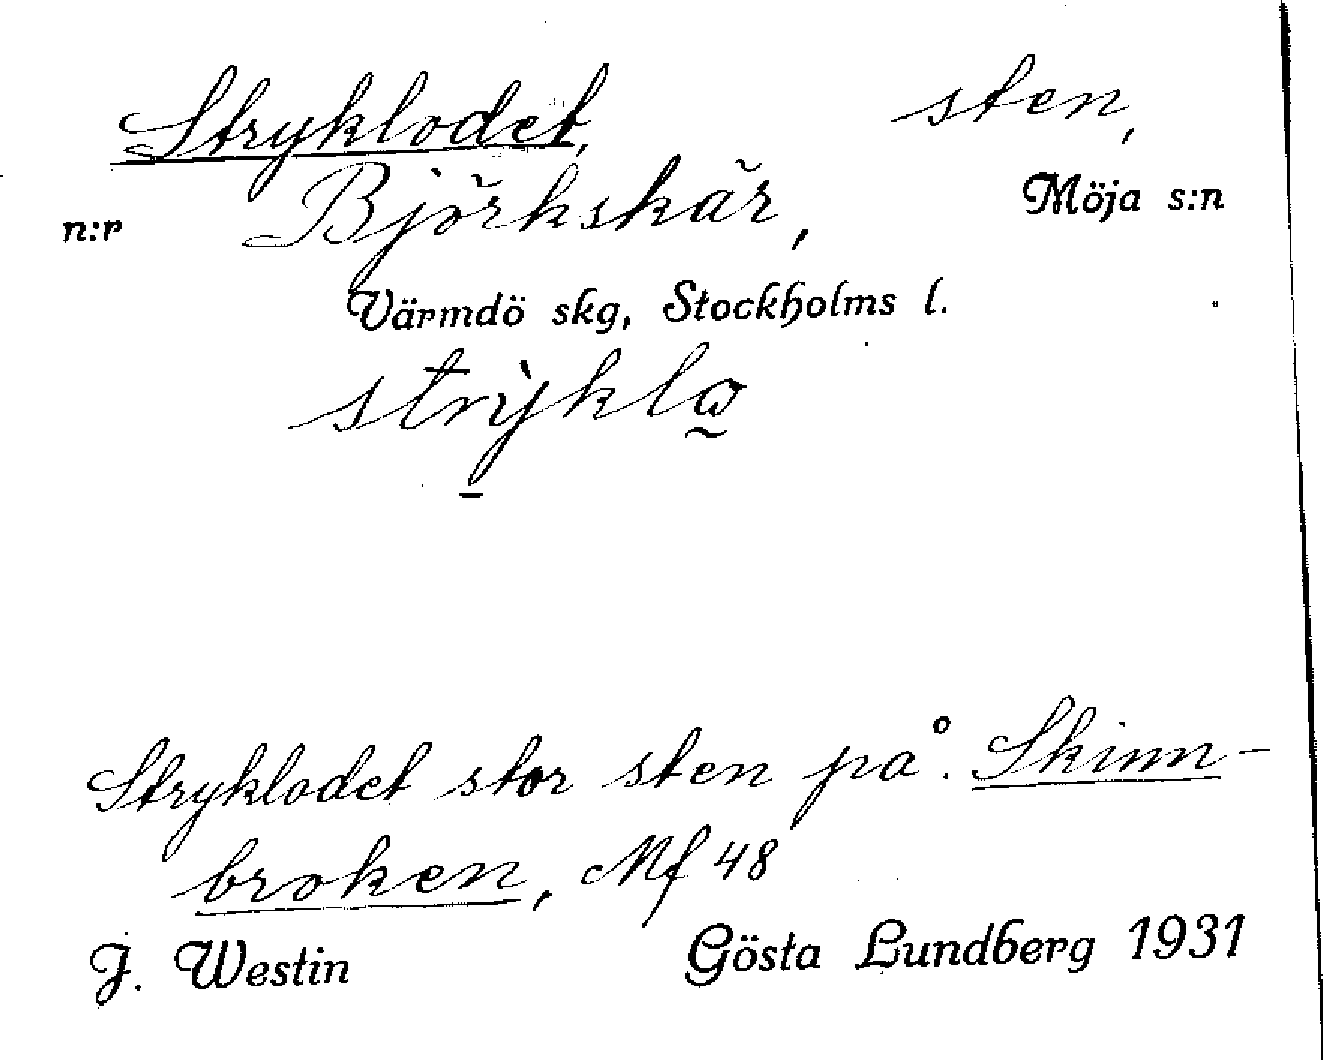 Stryklodet, sten,
n:r Björkskär, Möja s:n
Värmdö skg, Stockholms l.
Stryklodet stor sten på. Skinn-
broken, Mf 48
J. Westin Gösta Lundberg 1931